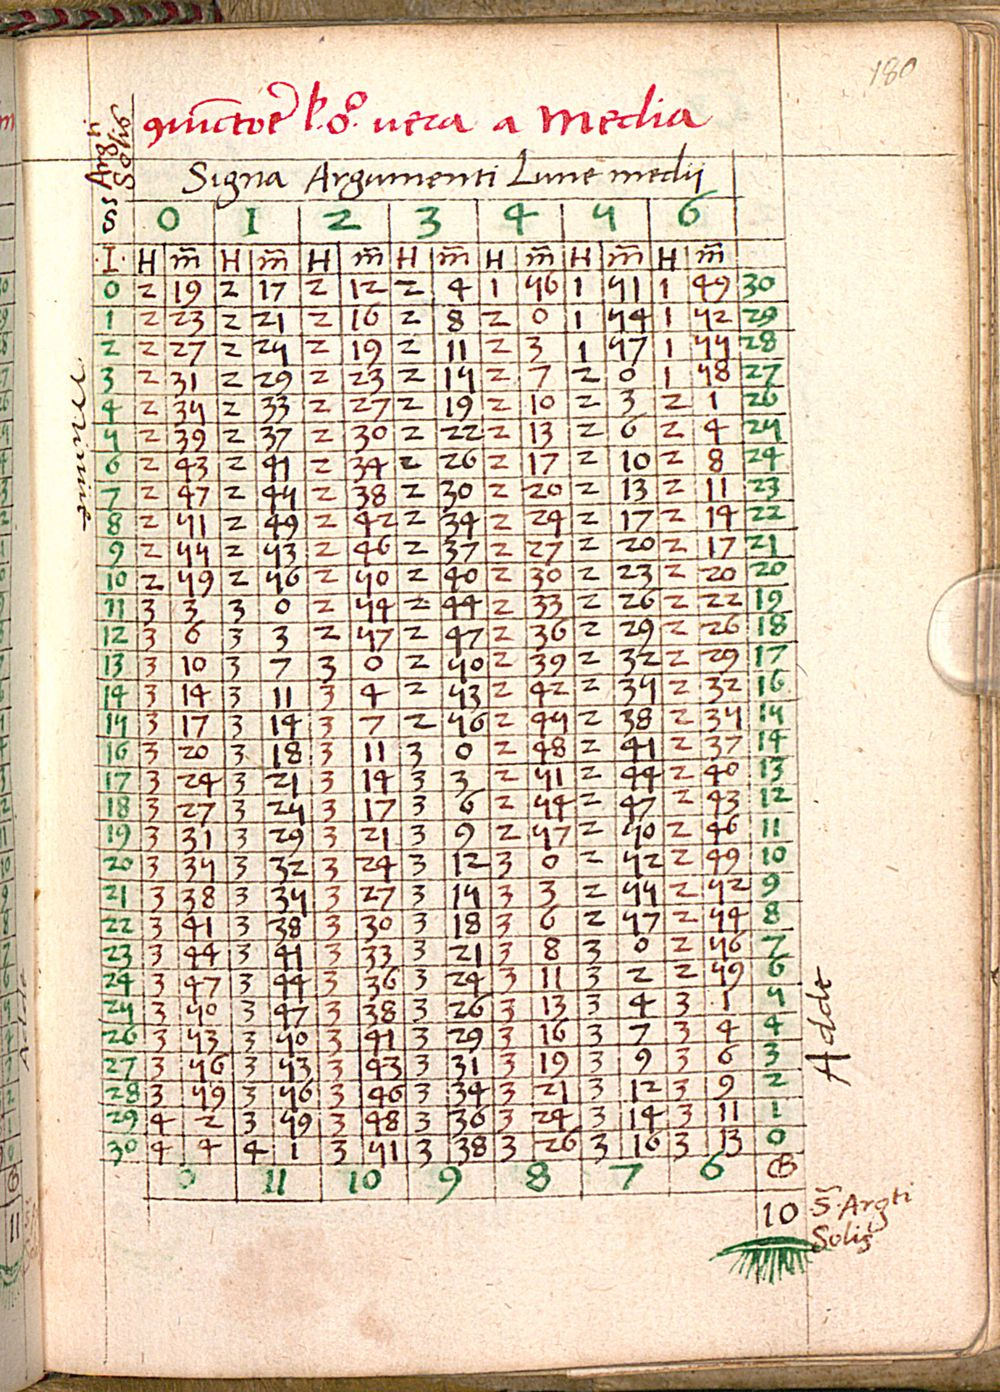 180
uera a media
Argti
Solis
Signa Argumenti Lune medij
S 0 1 2 3 4 5 6
.I. H m̄ H m̄ H m̄ H m̄ H m̄ H m̄ H m̄
0 2 19 2 17 2 12 2 4 1 56 1 51 1 49 30
1 2 23 2 21 2 16 2 8 2 0 1 54 1 52 29
2 2 27 2 25 2 19 2 11 2 3 1 57 1 55 28
3 2 31 2 29 2 23 2 15 2 7 2 0 1 58 27
4 2 35 2 33 2 27 2 19 2 10 2 3 2 1 26
5 2 39 2 37 2 30 2 22 2 13 2 6 2 4 25
6 2 43 2 41 2 34 2 26 2 17 2 10 2 8 24
7 2 47 2 45 2 38 2 30 2 20 2 13 2 11 23
8 2 51 2 49 2 42 2 34 2 24 2 17 2 14 22
9 2 55 2 53 2 46 2 37 2 27 2 20 2 17 21
10 2 59 2 56 2 50 2 40 2 30 2 23 2 20 20
11 3 3 3 0 2 54 2 44 2 33 2 26 2 22 19
12 3 6 3 3 2 57 2 47 2 36 2 29 2 26 18
13 3 10 3 7 3 0 2 50 2 39 2 32 2 29 17
14 3 14 3 11 3 4 2 53 2 42 2 35 2 32 16
15 3 17 3 14 3 7 2 56 2 45 2 38 2 35 15
16 3 20 3 18 3 11 3 0 2 48 2 41 2 37 14
17 3 24 3 21 3 14 3 3 2 51 2 44 2 40 13
18 3 27 3 25 3 17 3 6 2 54 2 47 2 43 12
19 3 31 3 29 3 21 3 9 2 57 2 50 2 46 11
20 3 35 3 32 3 24 3 12 3 0 2 52 2 49 10
21 3 38 3 35 3 27 3 15 3 3 2 55 2 52 9
22 3 41 3 38 3 30 3 18 3 6 2 57 2 54 8
23 3 44 3 41 3 33 3 21 3 8 3 0 2 56 7
24 3 47 3 44 3 36 3 24 3 11 3 2 2 59 6
25 3 50 3 47 3 38 3 26 3 13 3 4 3 1 5
26 3 53 3 50 3 41 3 29 3 16 3 7 3 4 4
27 3 56 3 53 3 43 3 31 3 19 3 9 3 6 3
28 3 59 3 56 3 46 3 34 3 21 3 12 3 9 2
29 4 2 3 59 3 48 3 36 3 24 3 14 3 11 1
30 4 4 4 1 3 51 3 38 3 26 3 16 3 13 0
0 11 10 9 8 7 6
10 S̄. Argti
Solis
Minue
Adde